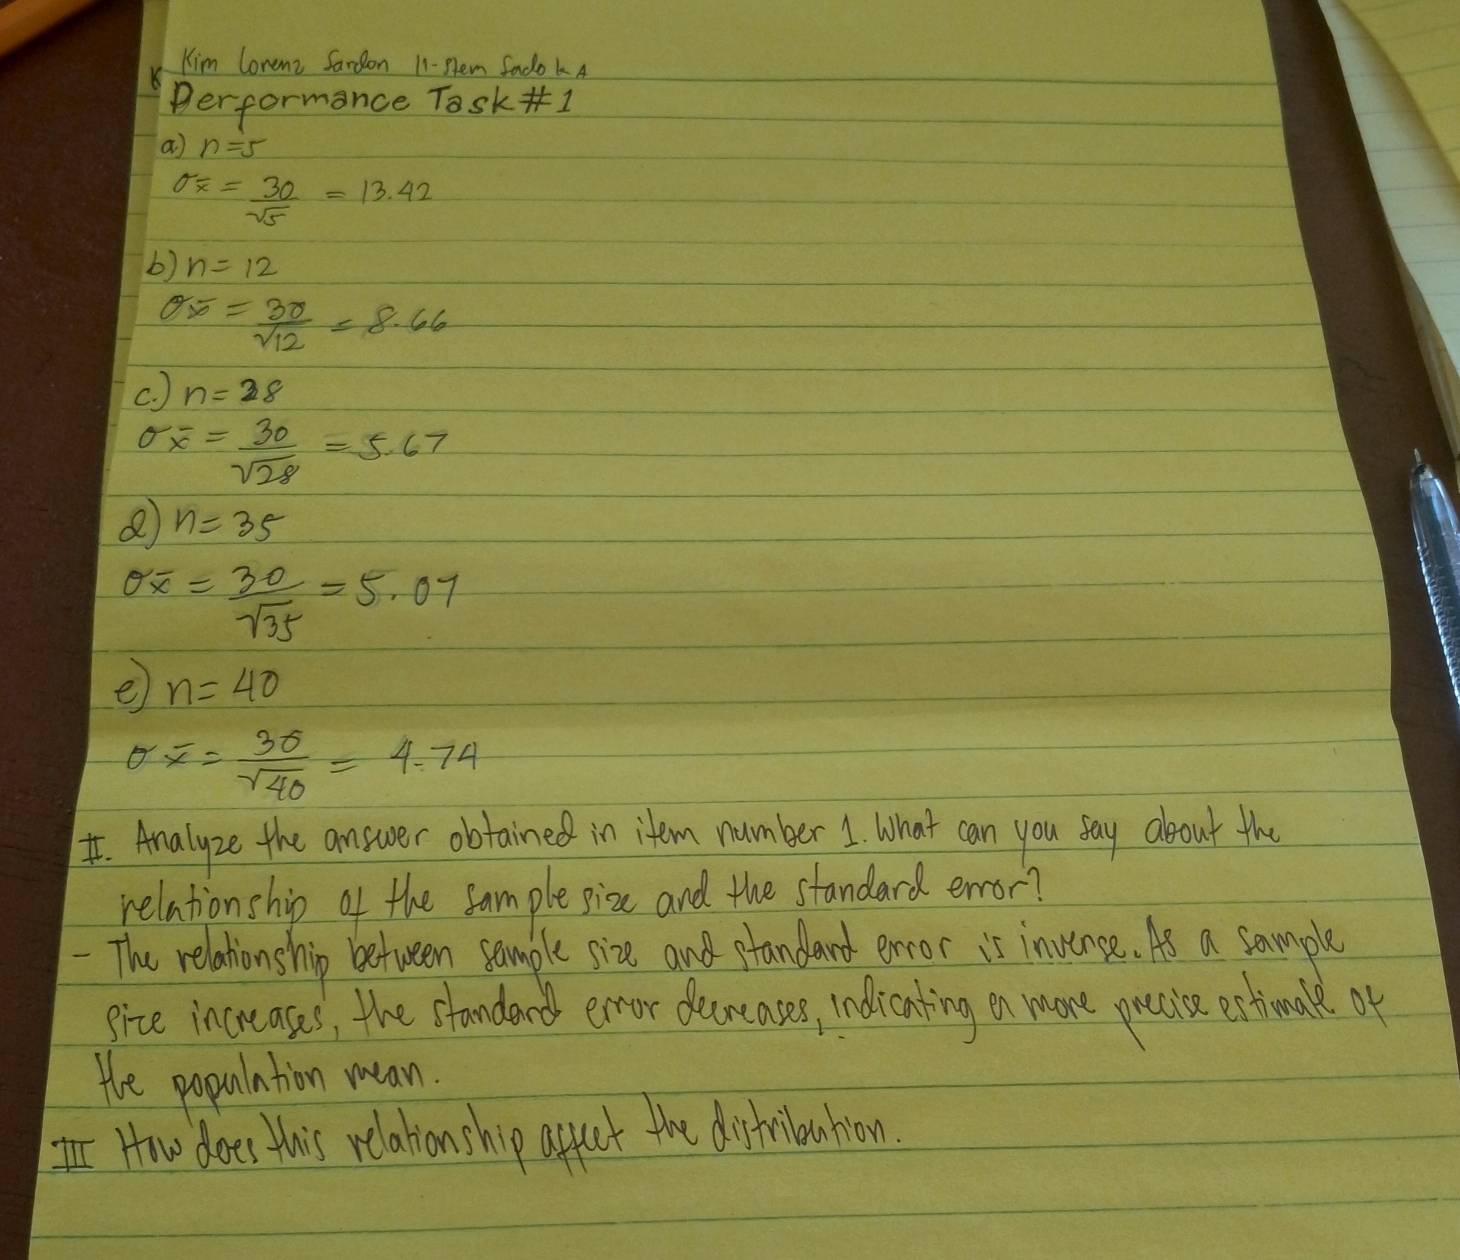 Kim Lorenz Sardon 11-Stem
Performance Task #1
a) n=5
σx̄ = 30/√5 = 13.42
b) n = 12
σx̄ = 30/√12 = 8.66
c.) n = 28
σx̄ = 30/√28 = 5.67
d) n = 35
σx̄ = 30/√35 = 5.07
e) n = 40
σx̄ = 30/√40 = 4.74
II. Analyze the answer obtained in item number 1. What can you say about the
relationship of the sample size and the standard error?
- The relationship between sample size and standard error is inverse. As a sample
size increases, the standard error decreases, indicating a more precise estimate of
the population mean.
III How does this relationship affect the distribution.